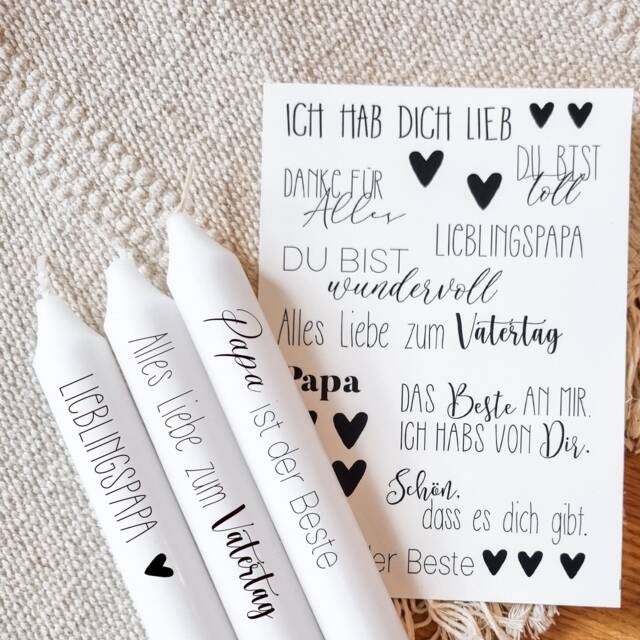 ICH HAB DICH LIEB
DANKE FÜR
Alles
DU BIST
toll
LIEBLINGSPAPA
DU BIST
wundervoll
Alles Liebe zum Vatertag
Papa
DAS Beste AN MIR.
ICH HABS VON Dir.
Schön,
dass es dich gibt.
der Beste
LIEBLINGSPAPA
Alles Liebe zum Vatertag
Papa ist der Beste